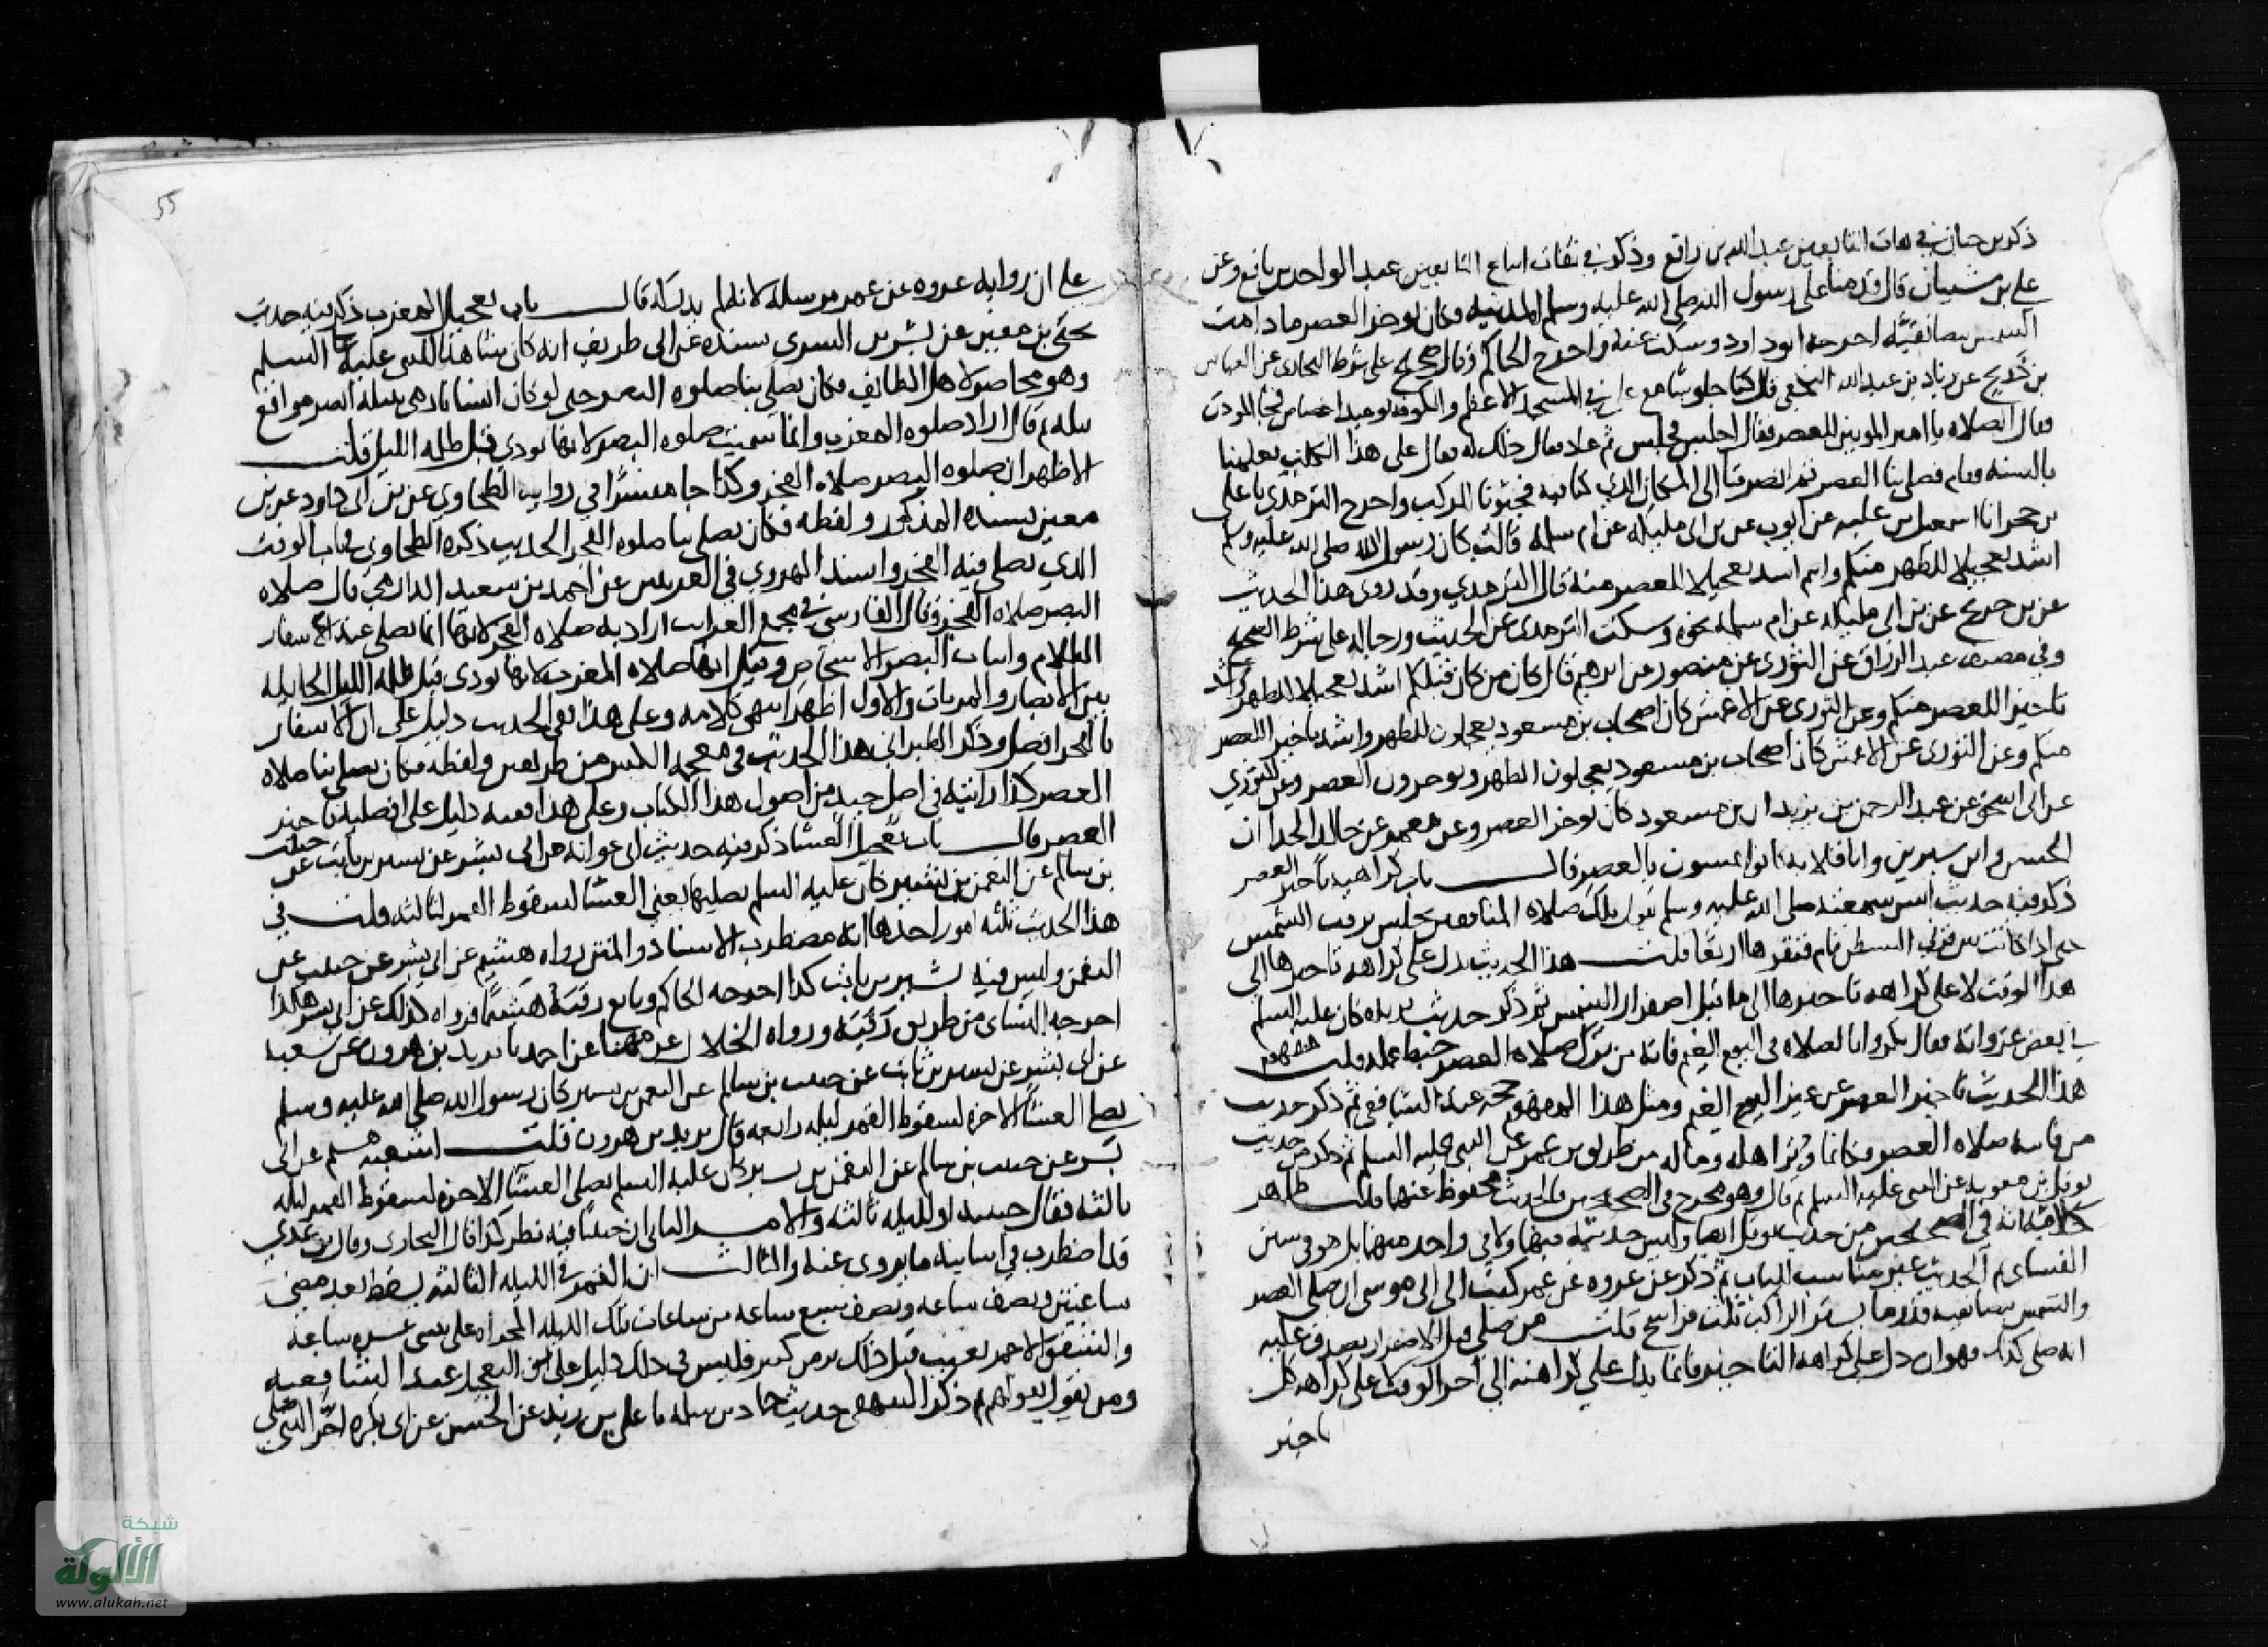 ذكر بن حبان في ثقات التابعين عبد الله بن رافع وذكر في ثقات اتباع التابعين عبد الواحد بن نافع وعن
علي بن شيبان قال قدمنا على رسول الله صلى الله عليه وسلم المدينة وكان يوخر العصر ما دامت
الشمس بيضا نقية اخرجه ابو داود وسكت عنه واخرج الحاكم وقال صحيح على شرط البخاري عن العباس
بن ذريح عن زياد بن عبد الله النخعي قال كنا جلوسا مع علي في المسجد الاعظم والكوفة يوميذ اخصاص فجا الموذن
فقال الصلاة يا امير المومنين للعصر فقال اجلس فجلس ثم عاد فقال ذلك له فقال علي هذا الكلب يعلمنا
بالسنة فقام فصلى بنا العصر ثم انصرفنا الى المكان الذي كنا فيه فجثونا للركب واخرج الترمذي نا علي
بن حجر انا اسمعيل بن علية عن ايوب عن بن ابي مليكة عن ام سلمة قالت كان رسول الله صلى الله عليه وسلم
اشد تعجيلا للظهر منكم وانتم اشد تعجيلا للعصر منه قال الترمذي وقد روي هذا الحديث
عن بن جريج عن بن ابي مليكة عن ام سلمة نحوه وسكت الترمذي عن الحديث ورجاله على شرط الصحيح
وفي مصنف عبد الرزاق عن الثوري عن منصور عن ابرهيم قال كان من كان قبلكم اشد تعجيلا للظهر واشد
تاخيرا للعصر منكم وعن الثوري عن الاعمش كان اصحاب بن مسعود يعجلون للظهر واشد تاخير العصر
منكم وعن الثوري عن الاعمش كان اصحاب بن مسعود يعجلون الظهر ويوخرون العصر وعن الثوري
عن ابي اسحق عن عبد الرحمن بن يزيد ان بن مسعود كان يوخر العصر وعن معمر عن خالد الحذا ان
الحسن وابن سيرين وابا قلابة كانوا يمسون بالعصر قال باب كراهية تاخير العصر
ذكر فيه حديث انس سمعته صلى الله عليه وسلم يقول تلك صلاة المنافقين يجلس يرقب الشمس
حتى اذا كانت بين قرني الشيطن قام فنقرها اربعا قلت هذا الحديث يدل على كراهة تاخيرها الى
هذا الوقت لا على كراهة تاخيرها الى ما قبل اصفرار الشمس ثم ذكر حديث بريدة كان عليه السلم
في بعض غزواته فقال بكروا بالصلاة في اليوم الغيم فانه من ترك صلاة العصر حبط عمله قلت مفهوم
هذا الحديث تاخير العصر في غير اليوم الغيم ومثل هذا المفهوم حجة عند الشافعي ثم ذكر حديث
من فاتته صلاة العصر فكانما وتر اهله وماله من طريق بن عمر عن النبي عليه السلم ثم ذكر من حديث
نوفل بن معوية عن النبي عليه السلم ثم قال وهو مخرج في الصحيحين والحديث محفوظ عنهما قلت ظاهر
كلامه انه في الصحيحين من حديث نوفل ايضا وليس حديثه فيهما ولا في واحد منهما بل هو في سنن
النساي ثم الحديث غير مناسب للباب ثم ذكر عن عروة عن عمر كتب الى ابي موسى ان صل العصر
والشمس بيضا نقية قدر ما يسير الراكب ثلث فراسخ قلت من صلى قبل الاصفرار يصدق عليه
انه صلى كذلك فهو ان دل على كراهة التاخير فانما يدل على كراهته الى اخر الوقت لا على كراهة كل
تاخير
55
على ان رواية عروة عن عمر مرسلة لانه لم يدركه قال باب تعجيل المغرب ذكر فيه حديث
يحيى بن معين عن بشر بن السري بسنده عن ابي طريف انه كان شاهدا للنبي عليه السلم
وهو محاصر لاهل الطايف فكان يصلي بنا صلوة البصر حتى لو كان انسانا رمى بنبله ابصر مواقع
نبله ثم قال اراد صلوة المغرب وانما سميت صلوة البصر لانها تودى قبل ظلمة الليل قلت
الاظهر ان صلوة البصر صلاة الفجر وكذا جا مفسرا في رواية الطحاوي عن بن ابي داود عن بن
معين بسنده المذكور ولفظه فكان يصلي بنا صلوة الفجر الحديث ذكره الطحاوي في باب الوقت
الذي يصلى فيه الفجر واسند الهروي في الغريبين عن احمد بن سعيد الدارمي قال صلاة
البصر صلاة الفجر وقال الفارسي في مجمع الغرايب اراد به صلاة الفجر لانها انما تصلى عند اسفار
الظلام واثبات البصر الاشخاص وقيل انها صلاة المغرب لانها تودى قبل ظلمة الليل الحايلة
بين الابصار والمرييات والاول اظهر انتهى كلامه وعلى هذا ففي الحديث دليل على ان الاسفار
بالفجر افضل وذكر الطبراني هذا الحديث في معجمه الكبير من طريقين ولفظه فكان يصلي بنا صلاة
العصر كذا رايته في اصل جيد من اصول هذا الكتاب وعلى هذا ففيه دليل على افضلية تاخير
العصر قال باب تعجيل العشا ذكر فيه حديث ابي عوانة عن ابي بشر عن بشير بن ثابت عن حبيب
بن سالم عن النعمن بن بشير كان عليه السلم يصليها يعني العشا لسقوط القمر لثالثة قلت في
هذا الحديث ثلثة امور احدها انه مضطرب الاسناد والمتن رواه هشيم عن ابي بشر عن حبيب عن
النعمن وليس فيه بشير بن ثابت كذا اخرجه الحاكم وتابع رقبة هشيما فرواه كذلك عن ابي بشر هكذا
اخرجه النساي من طريق رقبة ورواه الخلال عن مهنا عن احمد نا يزيد بن هرون عن شعبة
عن ابي بشر عن بشير بن ثابت عن حبيب بن سالم عن النعمن بن بشير كان رسول الله صلى الله عليه وسلم
يصلي العشا الاخرة لسقوط القمر ليلة رابعة وقال يزيد بن هرون قلت لشعبة هشيم عن ابي
بشر عن حبيب بن سالم عن النعمن بن بشير كان عليه السلم يصلي العشا الاخرة لسقوط القمر ليلة
ثالثة فقال حبيب او لليلة ثالثة والامر الثاني ان حبيبا فيه نظر كذا قال البخاري وقال بن عدي
قد اضطرب في اسانيد ما يروى عنه والثالث ان القمر في الليلة الثالثة يسقط بعد مضي
ساعتين ونصف ساعة ونصف سبع ساعة من ساعات تلك الليلة المجزاة على ثنتي عشرة ساعة
والشفق الاحمر يغيب قبل ذلك بزمن كثير فليس في ذلك دليل على التعجيل عند الشافعية
ومن يقول بقولهم ثم ذكر البيهقي حديث حماد بن سلمة نا علي بن زيد عن الحسن عن ابي بكرة اخر النبي صلى
شبكة
الألوكة
www.alukah.net